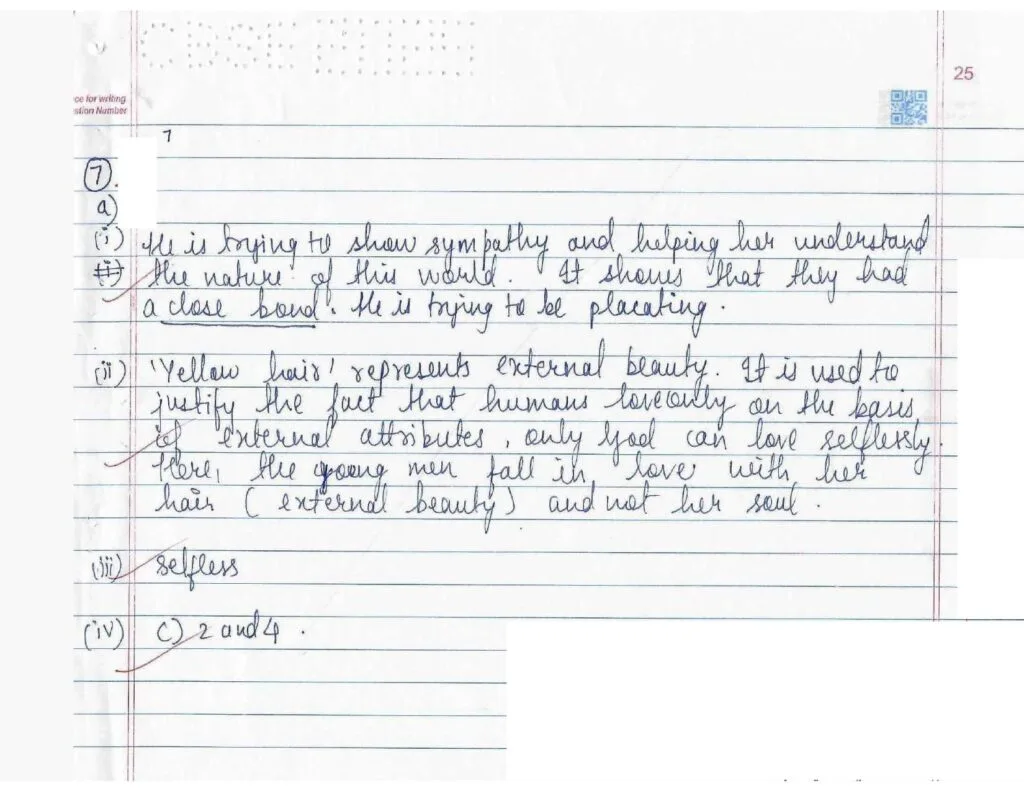 CBSE
25
ce for writing
stion Number
7
7.
a)
(i) He is trying to show sympathy and helping her understand
(ii) the nature of this world. It shows that they had
a close bond. He is trying to be placating.
(ii) 'Yellow hair' represents external beauty. It is used to
justify the fact that humans love only on the basis
of external attributes, only God can love selflessly.
Here, the young men fall in love with her
hair (external beauty) and not her soul.
(iii) selfless
(iv) C) 2 and 4.